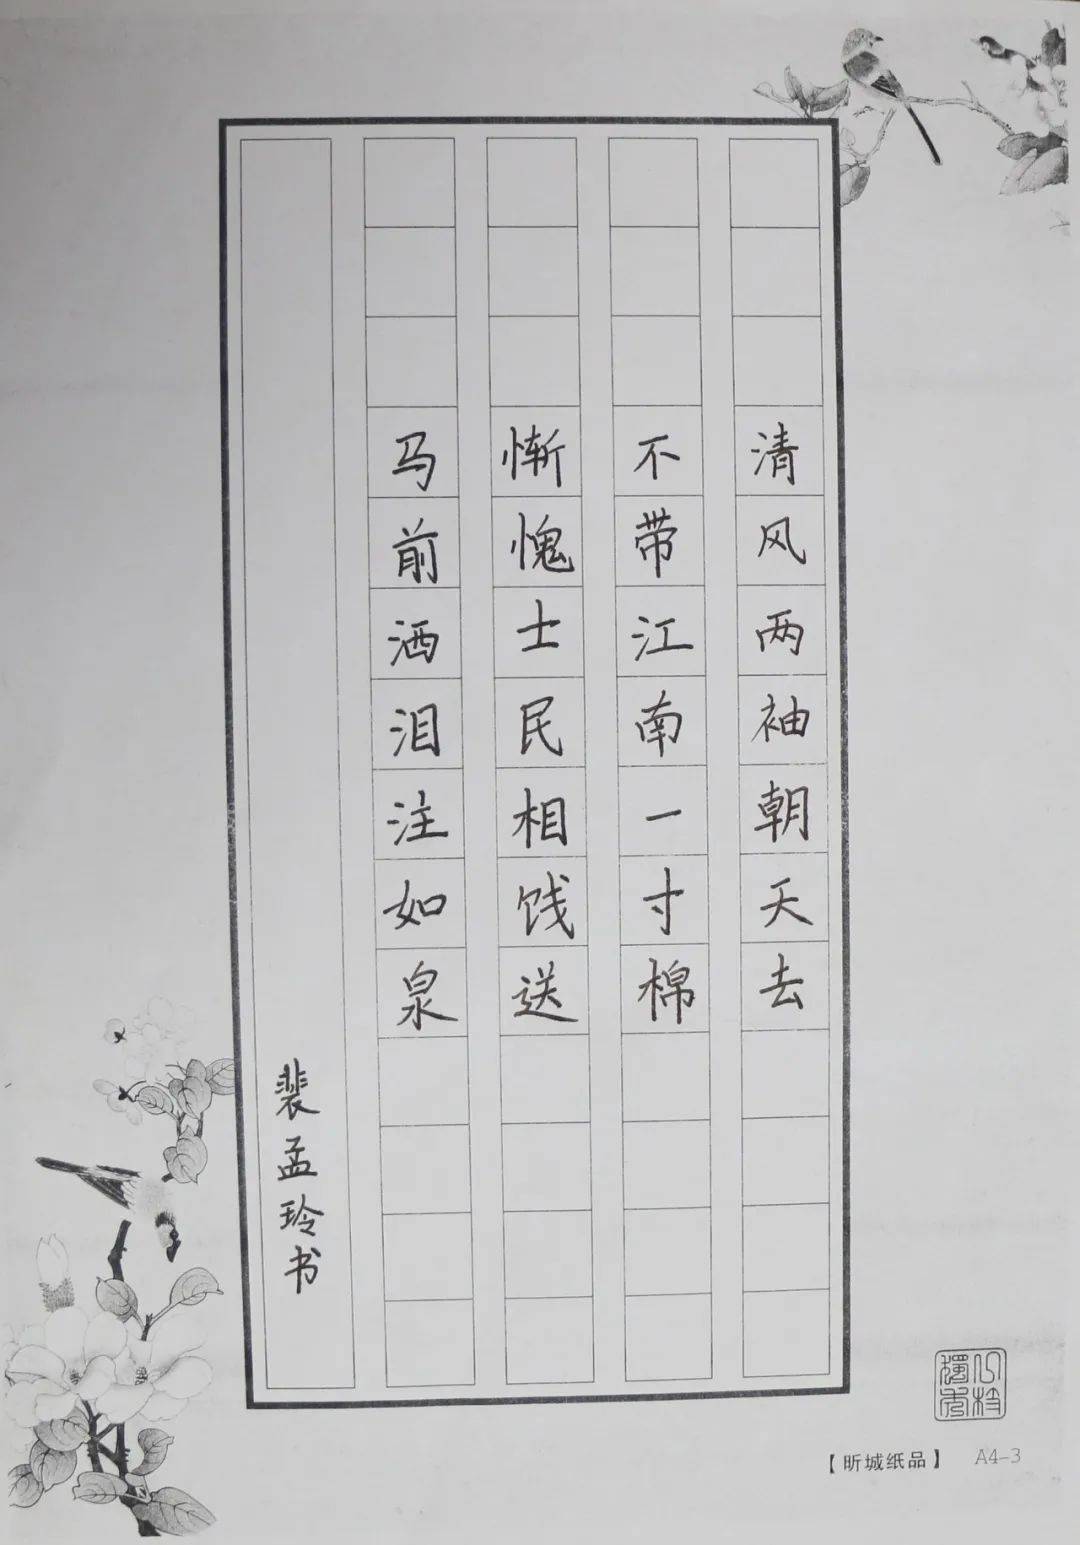 清风两袖朝天去
不带江南一寸棉
惭愧士民相饯送
马前洒泪注如泉
裴孟玲书
【昕城纸品】 A4-3